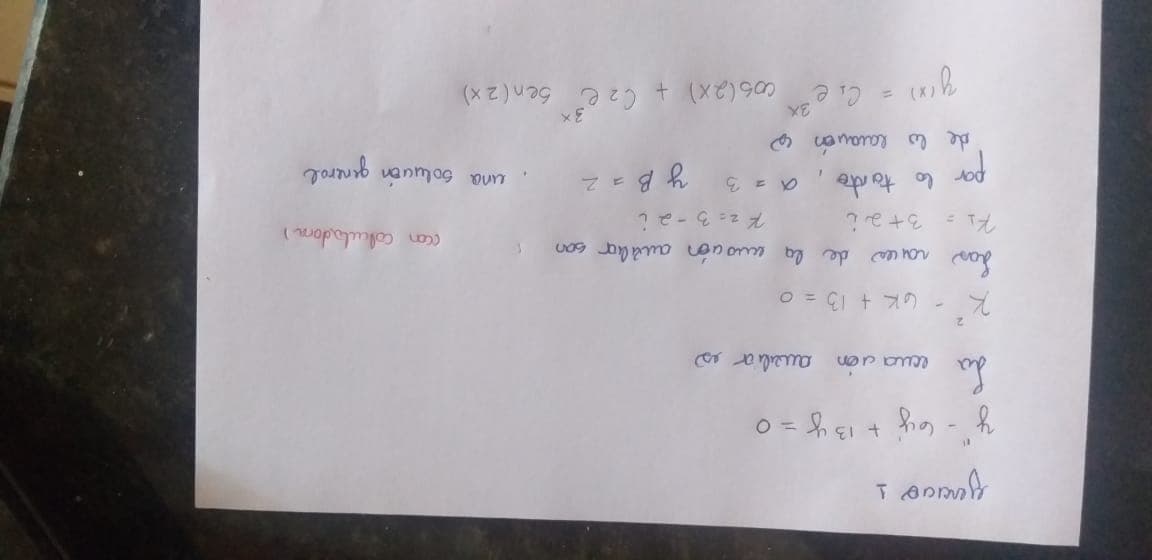 Ejercicio 1
y'' - 6y' + 13y = 0
La ecuación auxiliar es
K² - 6K + 13 = 0
Las raíces de la ecuación auxiliar son : (con calculadora)
K1 = 3 + 2i K2 = 3 - 2i
por lo tanto, α = 3 y β = 2 . una solución general
de la ecuación es
y(x) = C1 e^3x cos(2x) + C2 e^3x sen(2x)